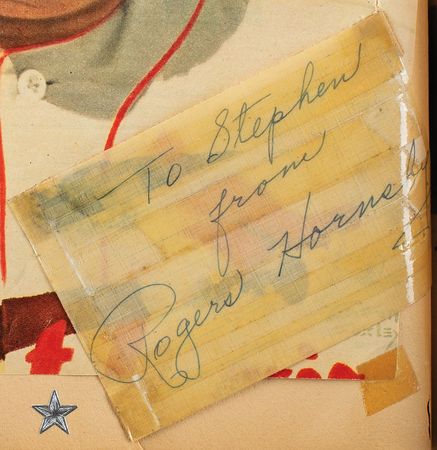 To Stephen
from
Rogers Hornsby